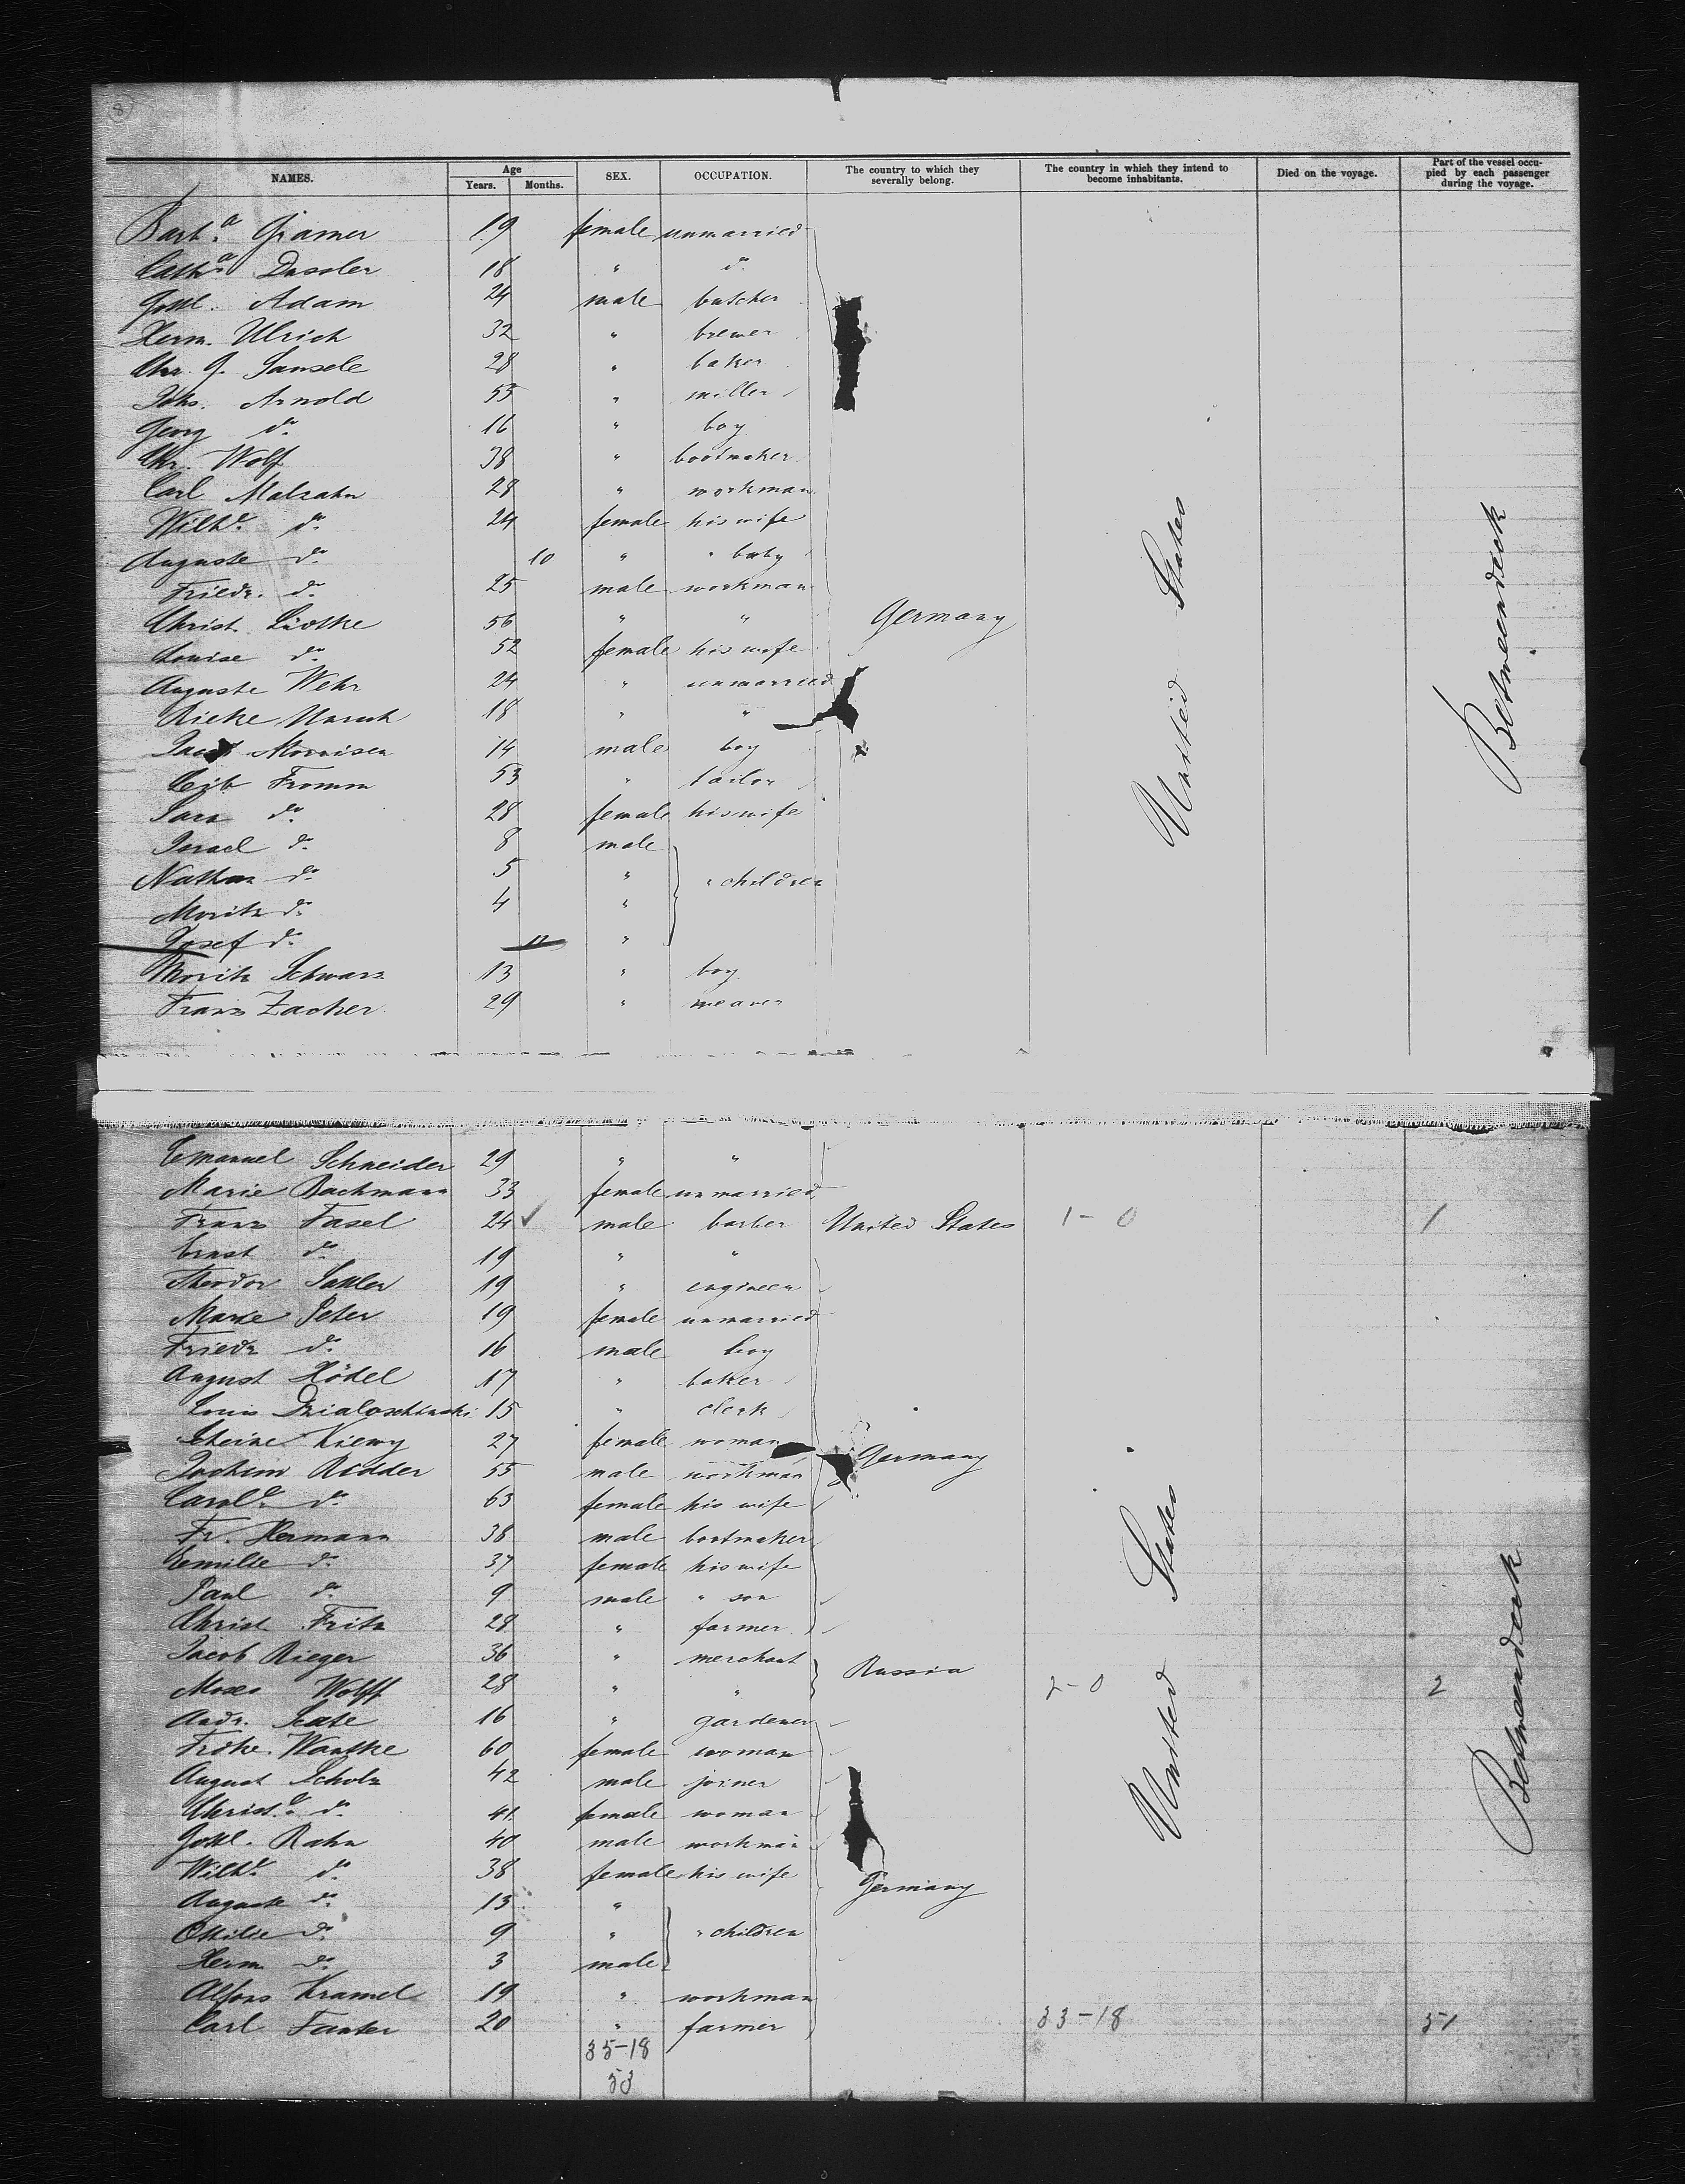 8
NAMES. Age Years. Months. SEX. OCCUPATION. The country to which they severally belong. The country in which they intend to become inhabitants. Died on the voyage. Part of the vessel occupied by each passenger during the voyage.
Barb.a Gramer 19 female unmarried
Cath.a Dassler 18 " do
Gottl. Adam 24 male butcher
Herm. Ulrich 32 " brewer
Chr. G. 28 " baker
Johs. Arnold 53 " miller
Georg do 16 " boy
Chr. Wolf 38 " bootmaker
Carl Malzahn 28 " workman
Wilh.e do 24 female his wife
Auguste do 10 " " baby
Friedr. do 25 male workman
Christ. Lüdtke 56 " " Germany
Louise do 52 female his wife
Auguste Wehr 24 " unmarried
Rieke 18 " "
Jacob Morrisen 14 male boy
Leib Fromm 53 " tailor
Sara do 28 female his wife
Israel do 8 male
Nathan do 5 " " children
Moritz do 4 "
Josef do 11 "
Moritz Schwarz 13 " boy
Franz Zacher 29 " weaver
United States
Betweendeck
Emanuel Schneider 29 " "
Marie Bachmann 33 female unmarried
Franz Fasel 24 ✓ male barber United States 1-0 1
Ernst do 19 " "
Theodor Sattler 19 " engineer
Marie Peter 19 female unmarried
Friedr do 16 male boy
August Hödel 17 " baker
Louis Dzialoschinski 15 " clerk
Kiewy 27 female woman
Jochim Ridder 55 male workman Germany
Carol.e do 63 female his wife
Fr. Hermann 38 male bootmaker
Emilie do 37 female his wife
Paul do 9 male " son
Christ. Fritz 28 " farmer
Jacob Rieger 36 " merchant Russia
Moses Wolff 28 " " 2-0 2
Andr. 16 " gardener
Fr Wantke 60 female woman
August Scholz 42 male joiner
Christ.e do 41 female woman
Gottl. Rahn 40 male workman
Wilh.e do 38 female his wife
Auguste do 13 " Germany
Ottilie do 9 " " children
Herm. do 3 male
Alfons Kramel 19 " workman
Carl Fanter 20 " farmer 33-18 51
35-18
53
United States
Betweendeck